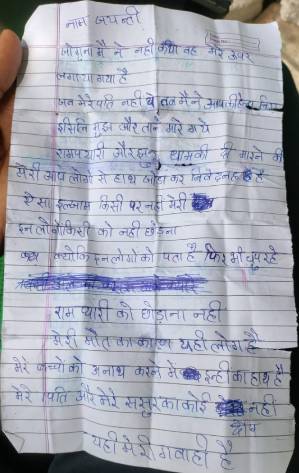 नाम जयन्ती
मै ने नही किया वह मेरे ऊपर
लगाया गया है
जब मेरे पति नही थे तब मैने
इसलिए मुझे और ताने मारे गये
रामप्यारी और धामकी दी मारने की
मेरी आप लोगो से हाथ जोड कर निवेदन है
ऐसा इल्जाम किसी पर नही मेरी
इन लोगो किसी को नही छोडना
क्योकि इन लोगो को पता है फिर भी चुप रहे
राम प्यारी को छोडाना नही
मेरी मौत का कारण यही लोग है
मेरे बच्चो को अनाथ करने मे इन्ही का हाथ है
मेरे पति और मेरे ससुर का कोई नही
दोष
यही मेरी गवाही है